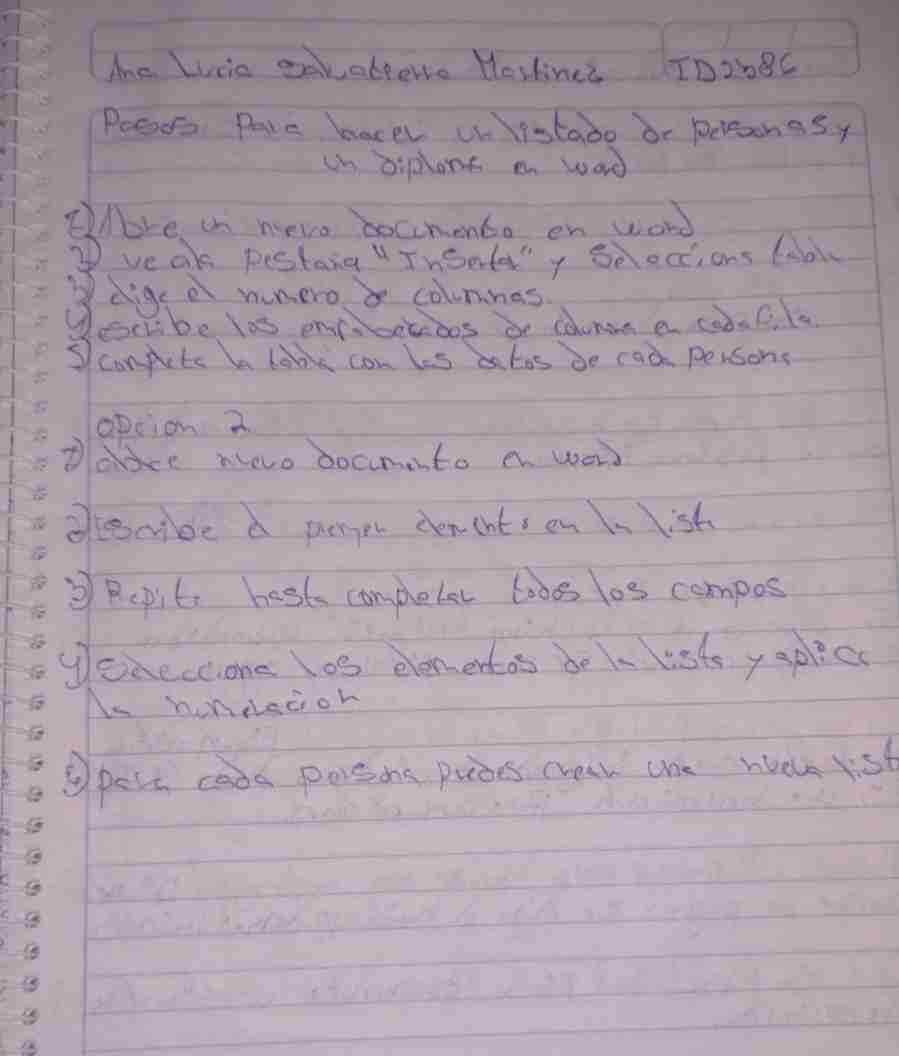 Ana Lucia Salvatierra Martinez ID2586
Pasos Para hacer un listado de personas y
un diploma en word
1) Abre un nuevo documento en word
2) ve a la pestaña "Inserta" y Selecciona tabla
3) elige el numero de columnas
4) escribe los encabezados de columna en cada fila
5) completa la tabla con los datos de cada persona
opcion 2
1) abre nuevo documento en word
2) escribe el primer elemento en la lista
3) Repite hasta completar todos los campos
4) Selecciona los elementos de la lista y aplica
la
5) para cada persona puedes crear una nueva list